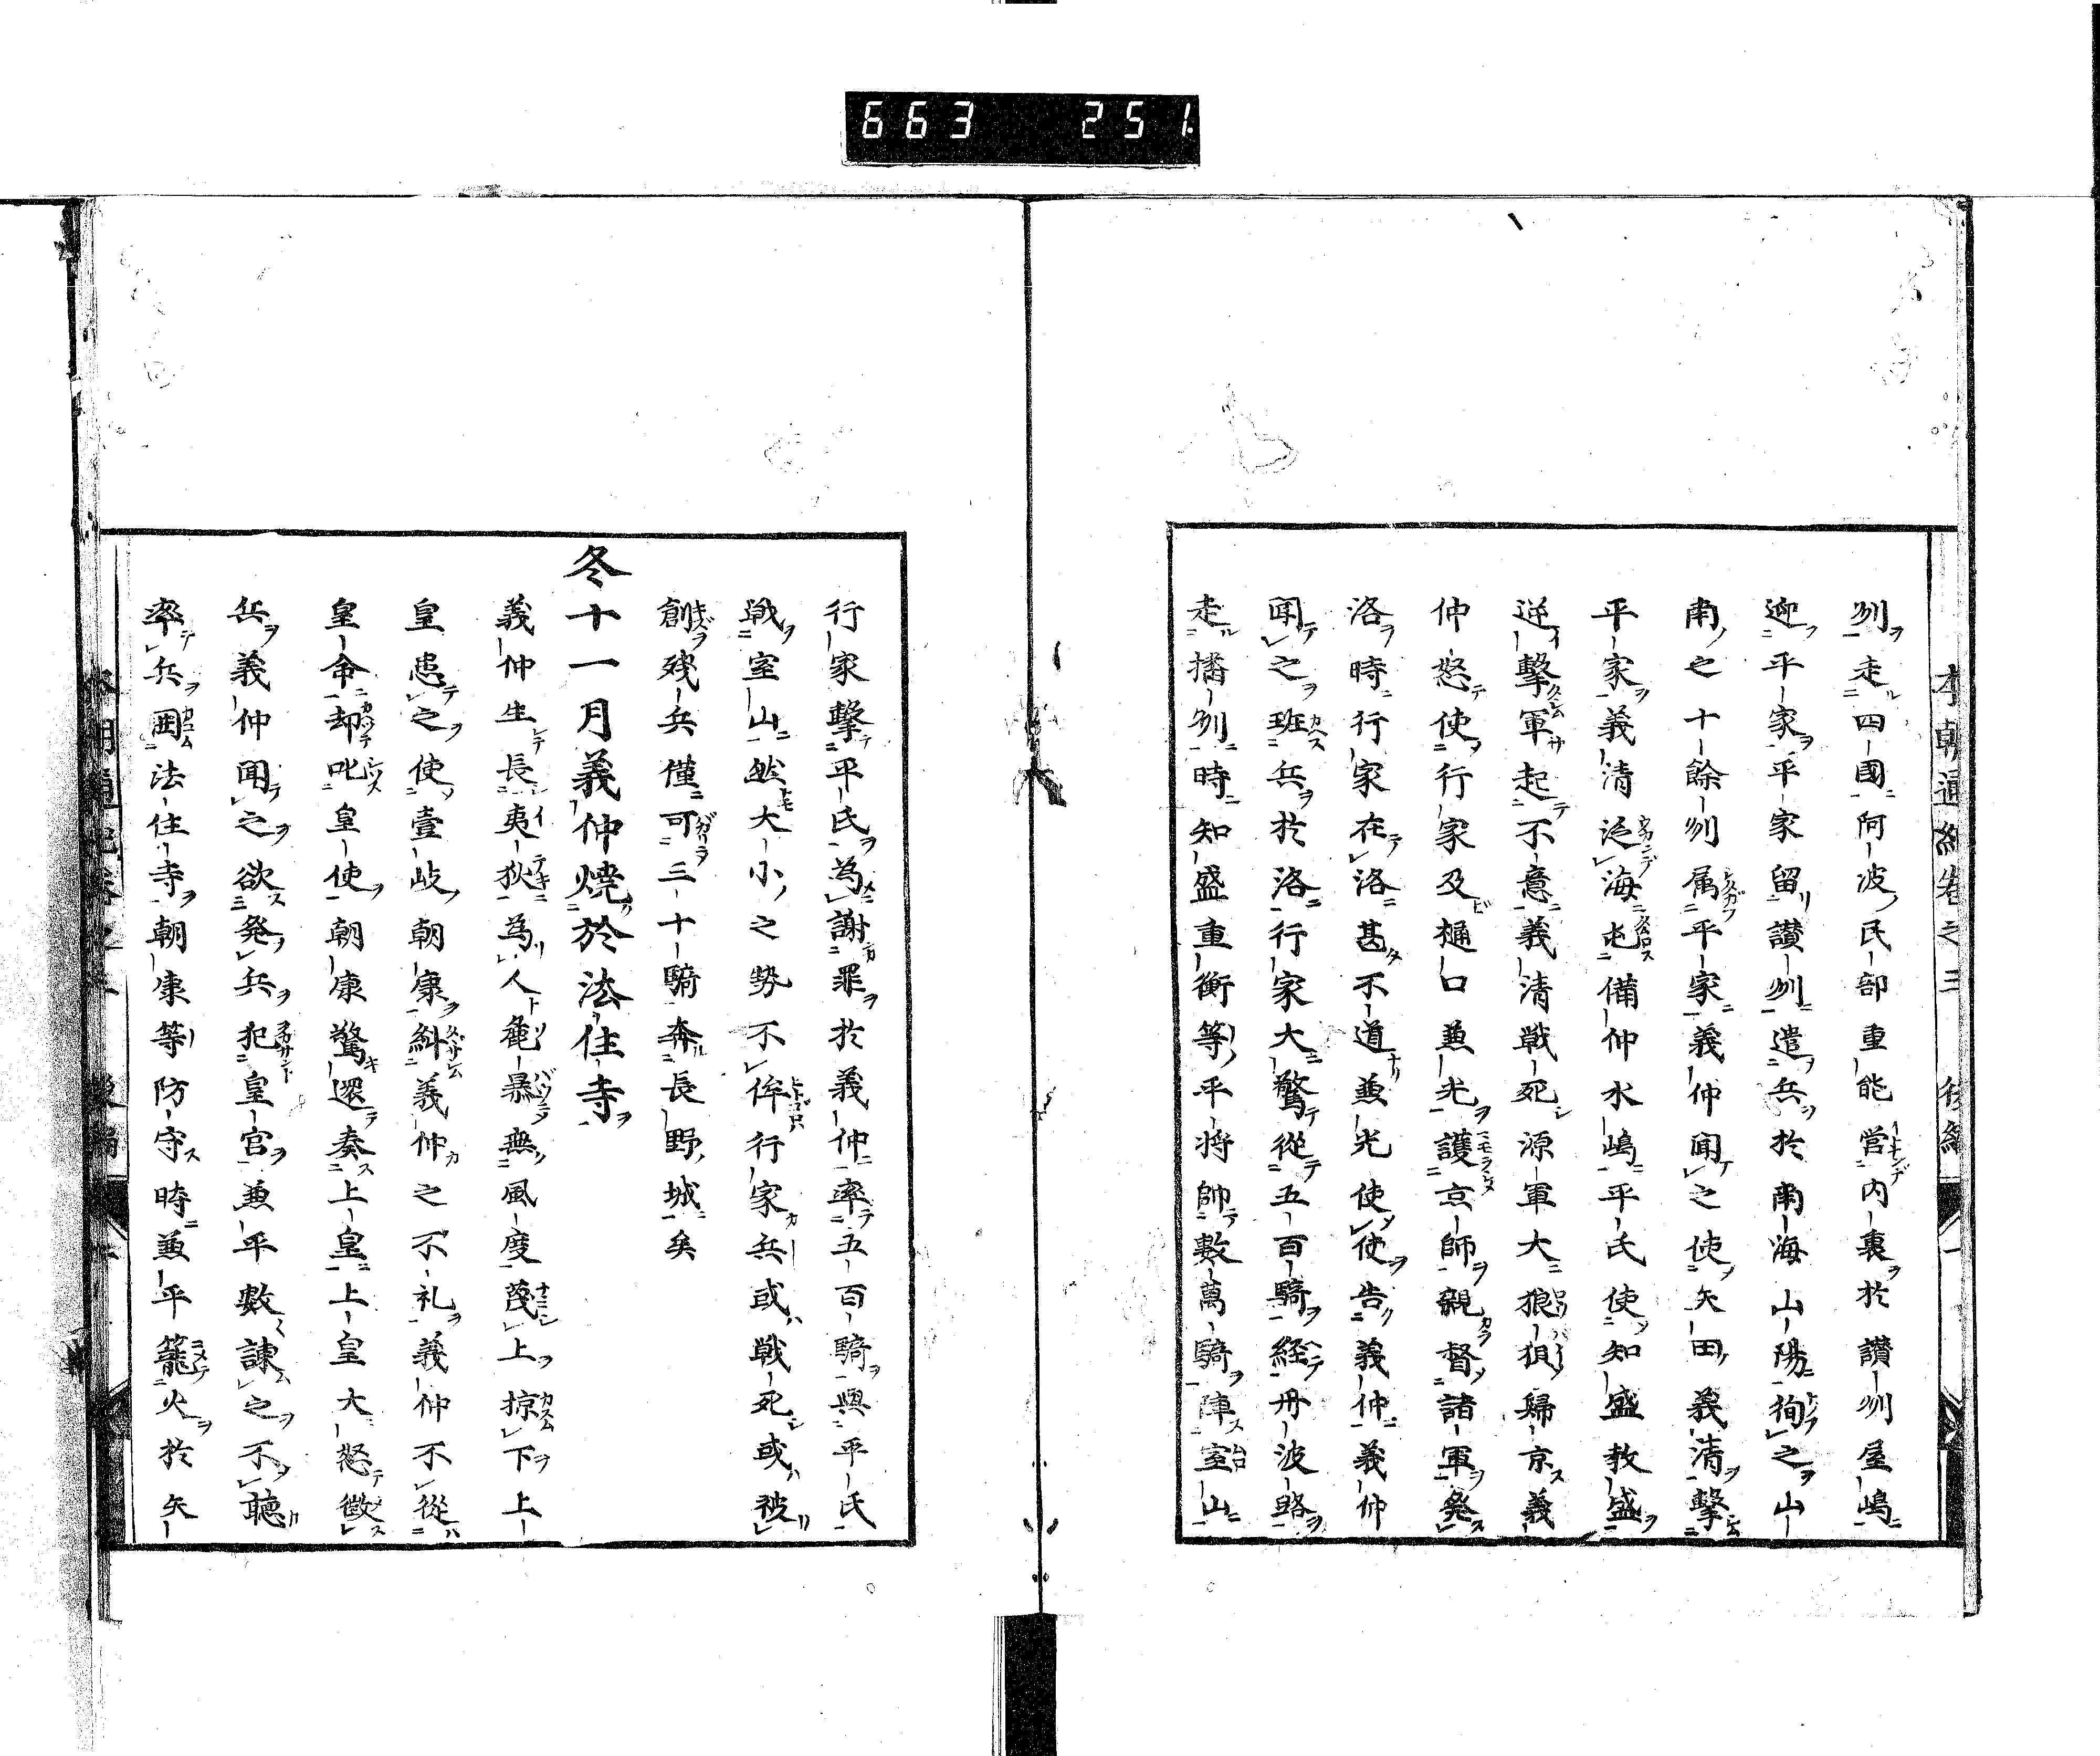 663 251
本朝通紀卷之三 後編 一
刕走四國阿波民部重能営内裏於讃刕屋嶋
迎平家平家留讃刕遣兵於南海山陽徇之山
南之十餘刕属平家義仲聞之使矢田義清擊
平家義清泛海屯備仲水嶋平氏使知盛教盛
逆擊軍起不意義清戦死源軍大狼狽歸京義
仲怒使行家及樋口兼光護京師親督諸軍発
洛時行家在洛甚不道兼光使使告義仲義仲
聞之班兵於洛行家大驚從五百騎経丹波路
走播刕時知盛重衡等平将帥數萬騎陣室山
行家擊平氏為謝罪於義仲率五百騎與平氏
戦室山然大小之勢不侔行家兵或戦死或被
創殘兵僅可三十騎奔長野城矣
冬十一月義仲燒於法住寺
義仲生長夷狄為人麁暴無風度蔑上掠下上
皇患之使壹岐朝康糾義仲之不礼義仲不從
皇命却叱皇使朝康驚還奏上皇上皇大怒徴
兵義仲聞之欲発兵犯皇宮兼平數諌之不聴
率兵囲法住寺朝康等防守時兼平籠火於矢